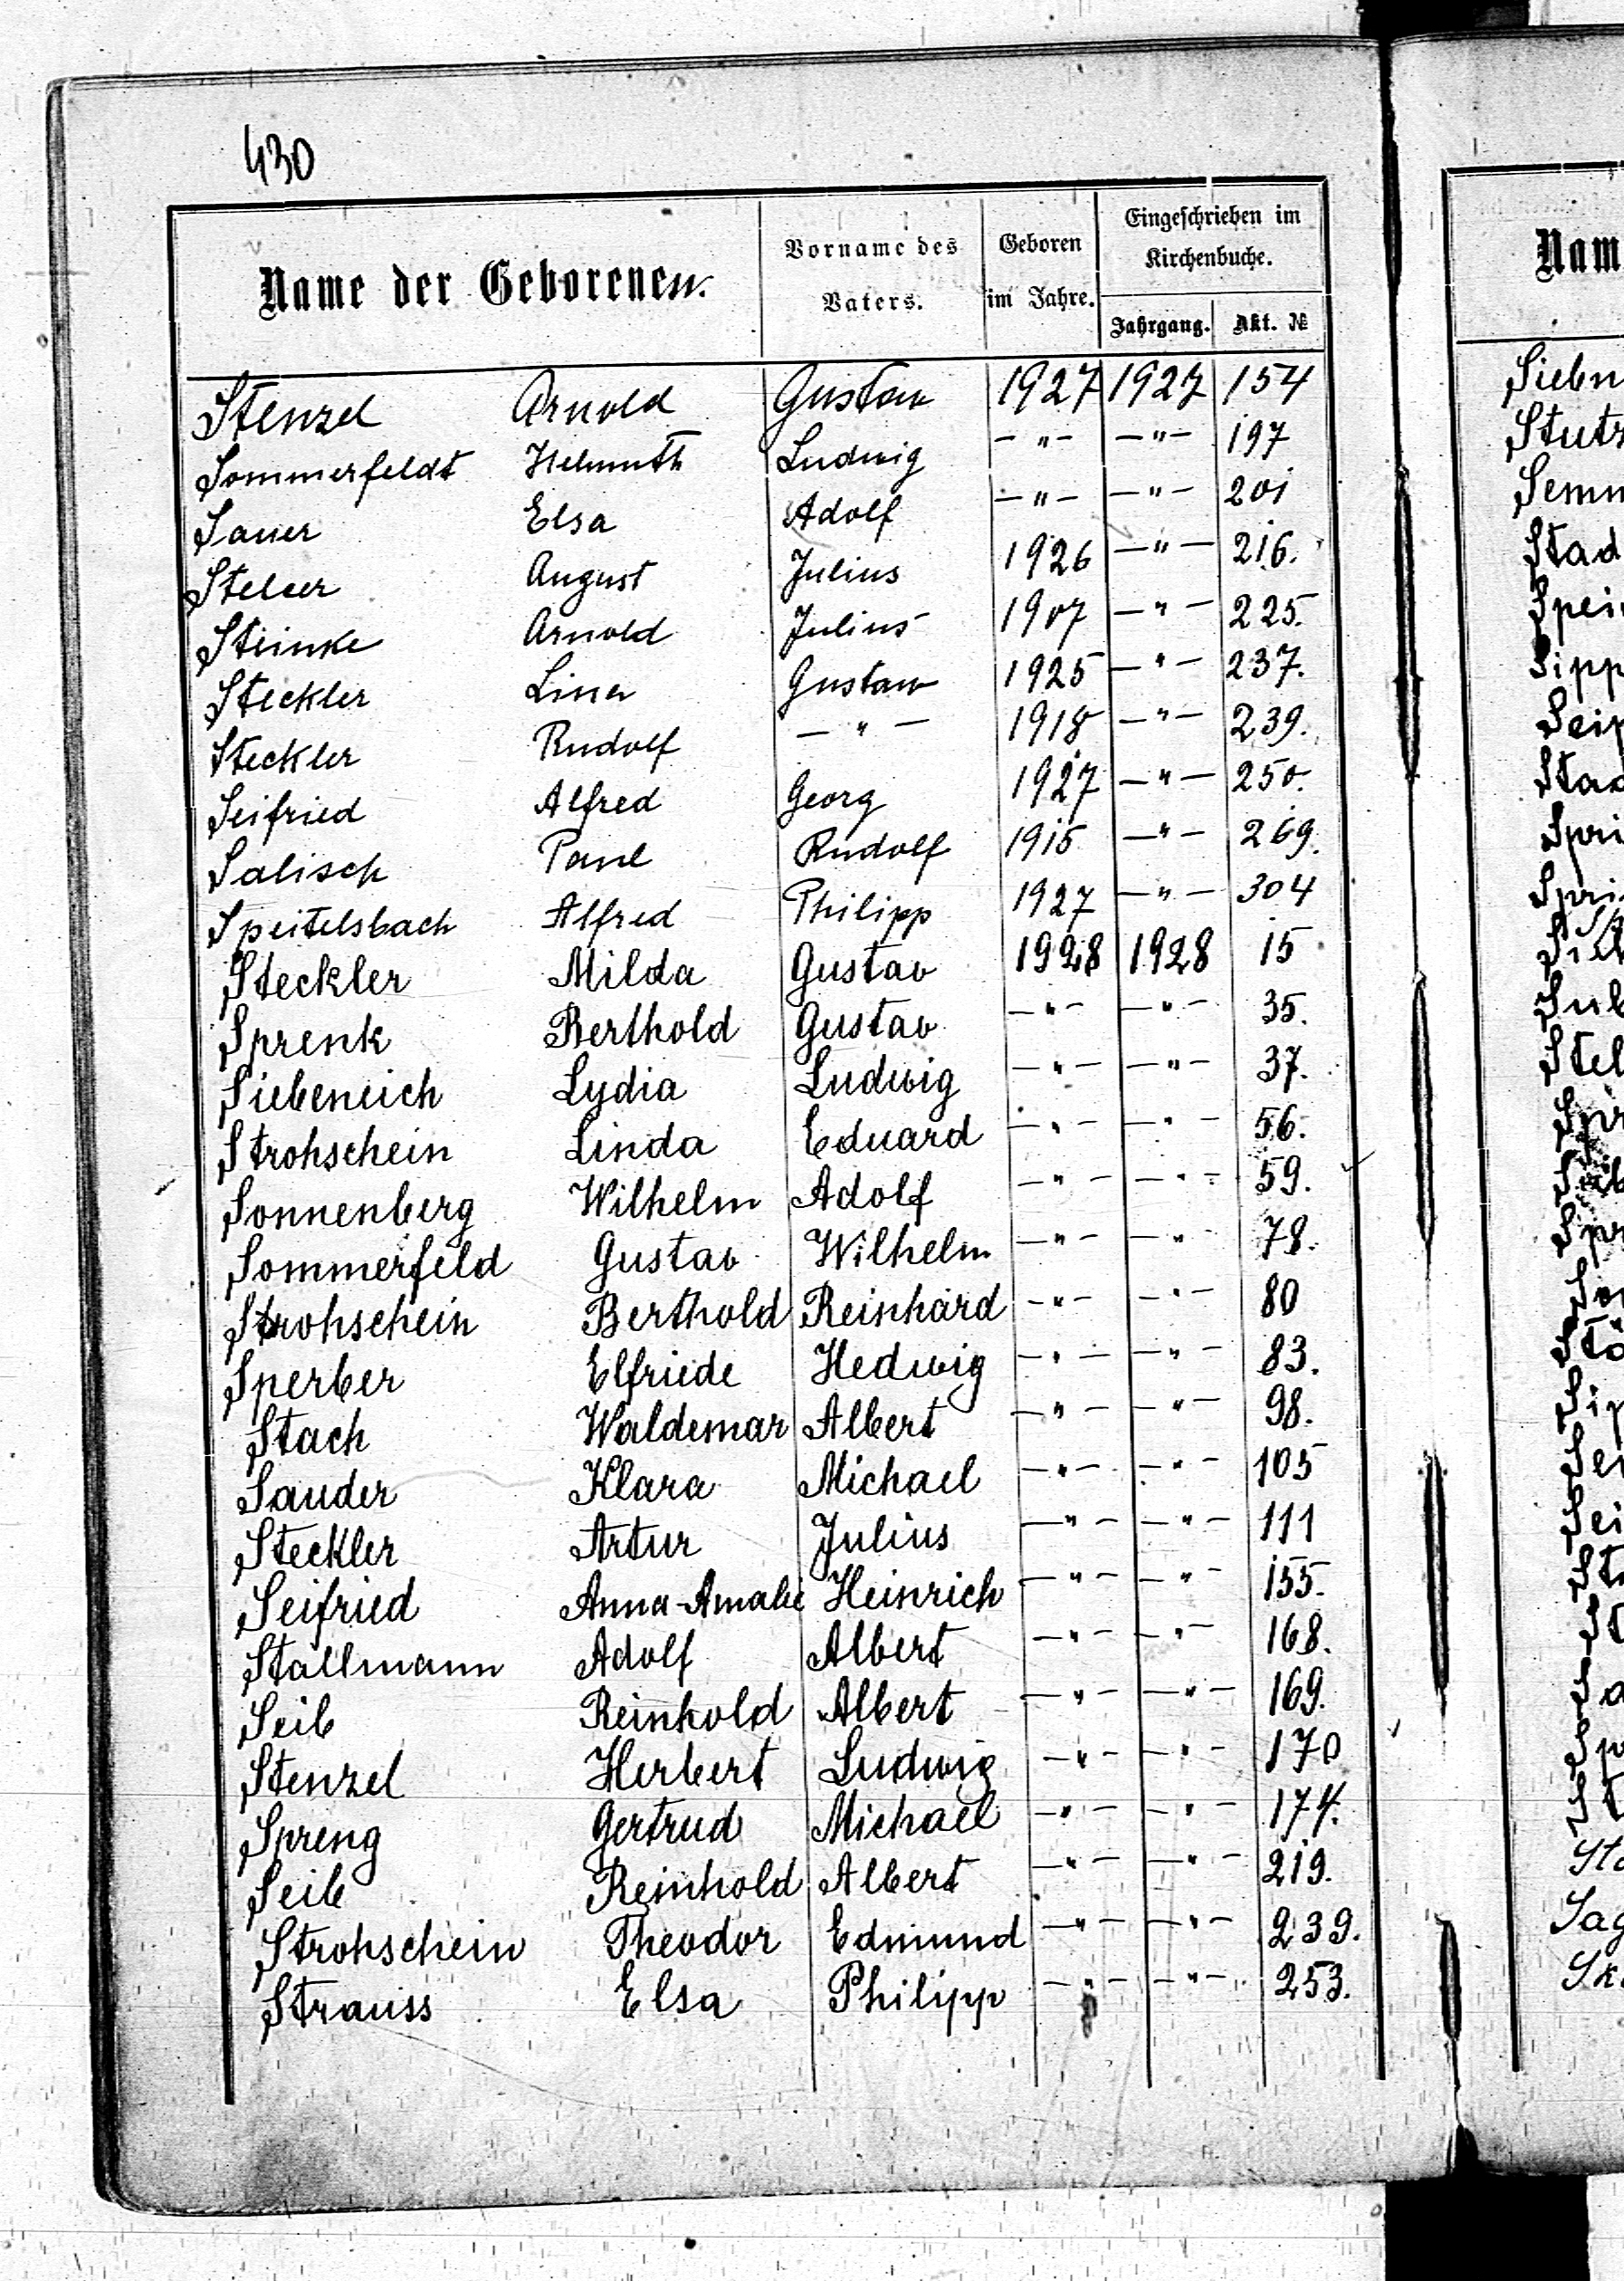 430
Name der Geborenen.
Vorname des Vaters.
Geboren im Jahre.
Eingeschrieben im Kirchenbuche.
Jahrgang. Akt. №
Stenzel Arnold Gustav 1927 1927 154
Sommerfeldt Helmuth Ludwig -"- -"- 197
Sauer Elsa Adolf -"- -"- 201
Stelcer August Julius 1926 -"- 216.
Steinke Arnold Julius 1907 -"- 225.
Steckler Lina Gustaw 1925 -"- 237.
Steckler Rudolf -"- 1918 -"- 239.
Seifried Alfred Georg 1927 -"- 250.
Salisch Paul Rudolf 1915 -"- 269.
Speitelsbach Alfred Philipp 1927 -"- 304
Steckler Milda Gustav 1928 1928 15
Sprenk Berthold Gustav -"- -"- 35.
Siebeneich Lydia Ludwig -"- -"- 37.
Strohschein Linda Eduard -"- -"- 56.
Sonnenberg Wilhelm Adolf -"- -"- 59.
Sommerfeld Gustav Wilhelm -"- -"- 78.
Strohschein Berthold Reinhard -"- -"- 80
Sperber Elfriede Hedwig -"- -"- 83.
Stach Waldemar Albert -"- -"- 98.
Sauder Klara Michael -"- -"- 105
Steckler Artur Julius -"- -"- 111
Seifried Anna-Amalie Heinrich -"- -"- 155.
Stallmann Adolf Albert -"- -"- 168.
Seib Reinhold Albert -"- -"- 169.
Stenzel Herbert Ludwig -"- -"- 170
Spreng Gertrud Michael -"- -"- 174.
Seib Reinhold Albert -"- -"- 219.
Strohschein Theodor Edmund -"- -"- 239.
Strauss Elsa Philipp -"- -"- 253.